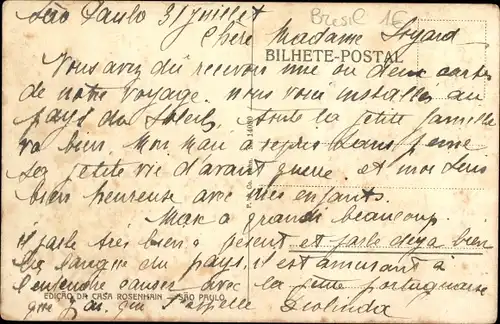 São Paulo 31 juillet
Bresil 1€
Chère Madame
BILHETE-POSTAL
Vous avez du recevoir une ou deux cartes
de notre voyage. nous voici installés au
pays du Soleil, toute la petite famille
va bien. Mon mari a repris sans peine
sa petite vie d'avant guerre. et moi suis
bien heureuse avec mes enfants.
Max a grandi beaucoup.
il parle très bien à présent et parle deja bien
la langue du pays, il est amusant à
l'entendre causer avec la petite portugaise
EDIÇÃO DA CASA ROSENHAIN — SÃO PAULO
qui s'appelle Deolinda